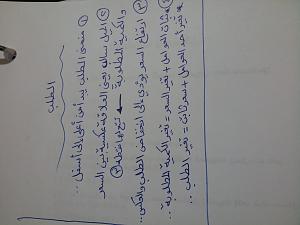 الطلب
① منحنى الطلب ينحدر من أعلى إلى أسفل ..
② الميل سالب يعني العلاقة عكسية بين السعر
والكمية المطلوبة ← تتبع نقطة ③
③ ارتفاع السعر يؤدي إلى انخفاض الطلب والعكس ..
* ثبات العوامل + تغير السعر = تغير الكمية المطلوبة ..
* تغير أحد العوامل + سعر ثابت = تغير الطلب ..